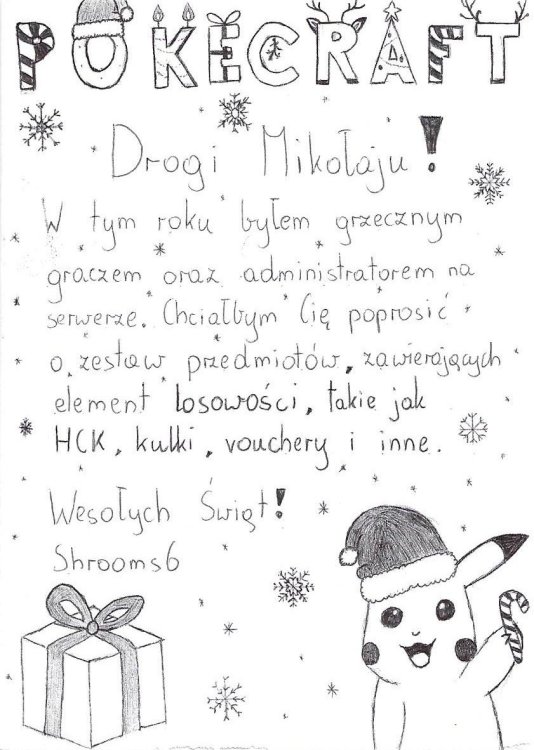 POKECRAFT
Drogi Mikołaju!
W tym roku byłem grzecznym
graczem oraz administratorem na
serwerze. Chciałbym Cię poprosić
o zestaw przedmiotów, zawierających
element losowości, takie jak
HCK, kulki, vouchery i inne.
Wesołych Świąt!
Shrooms6